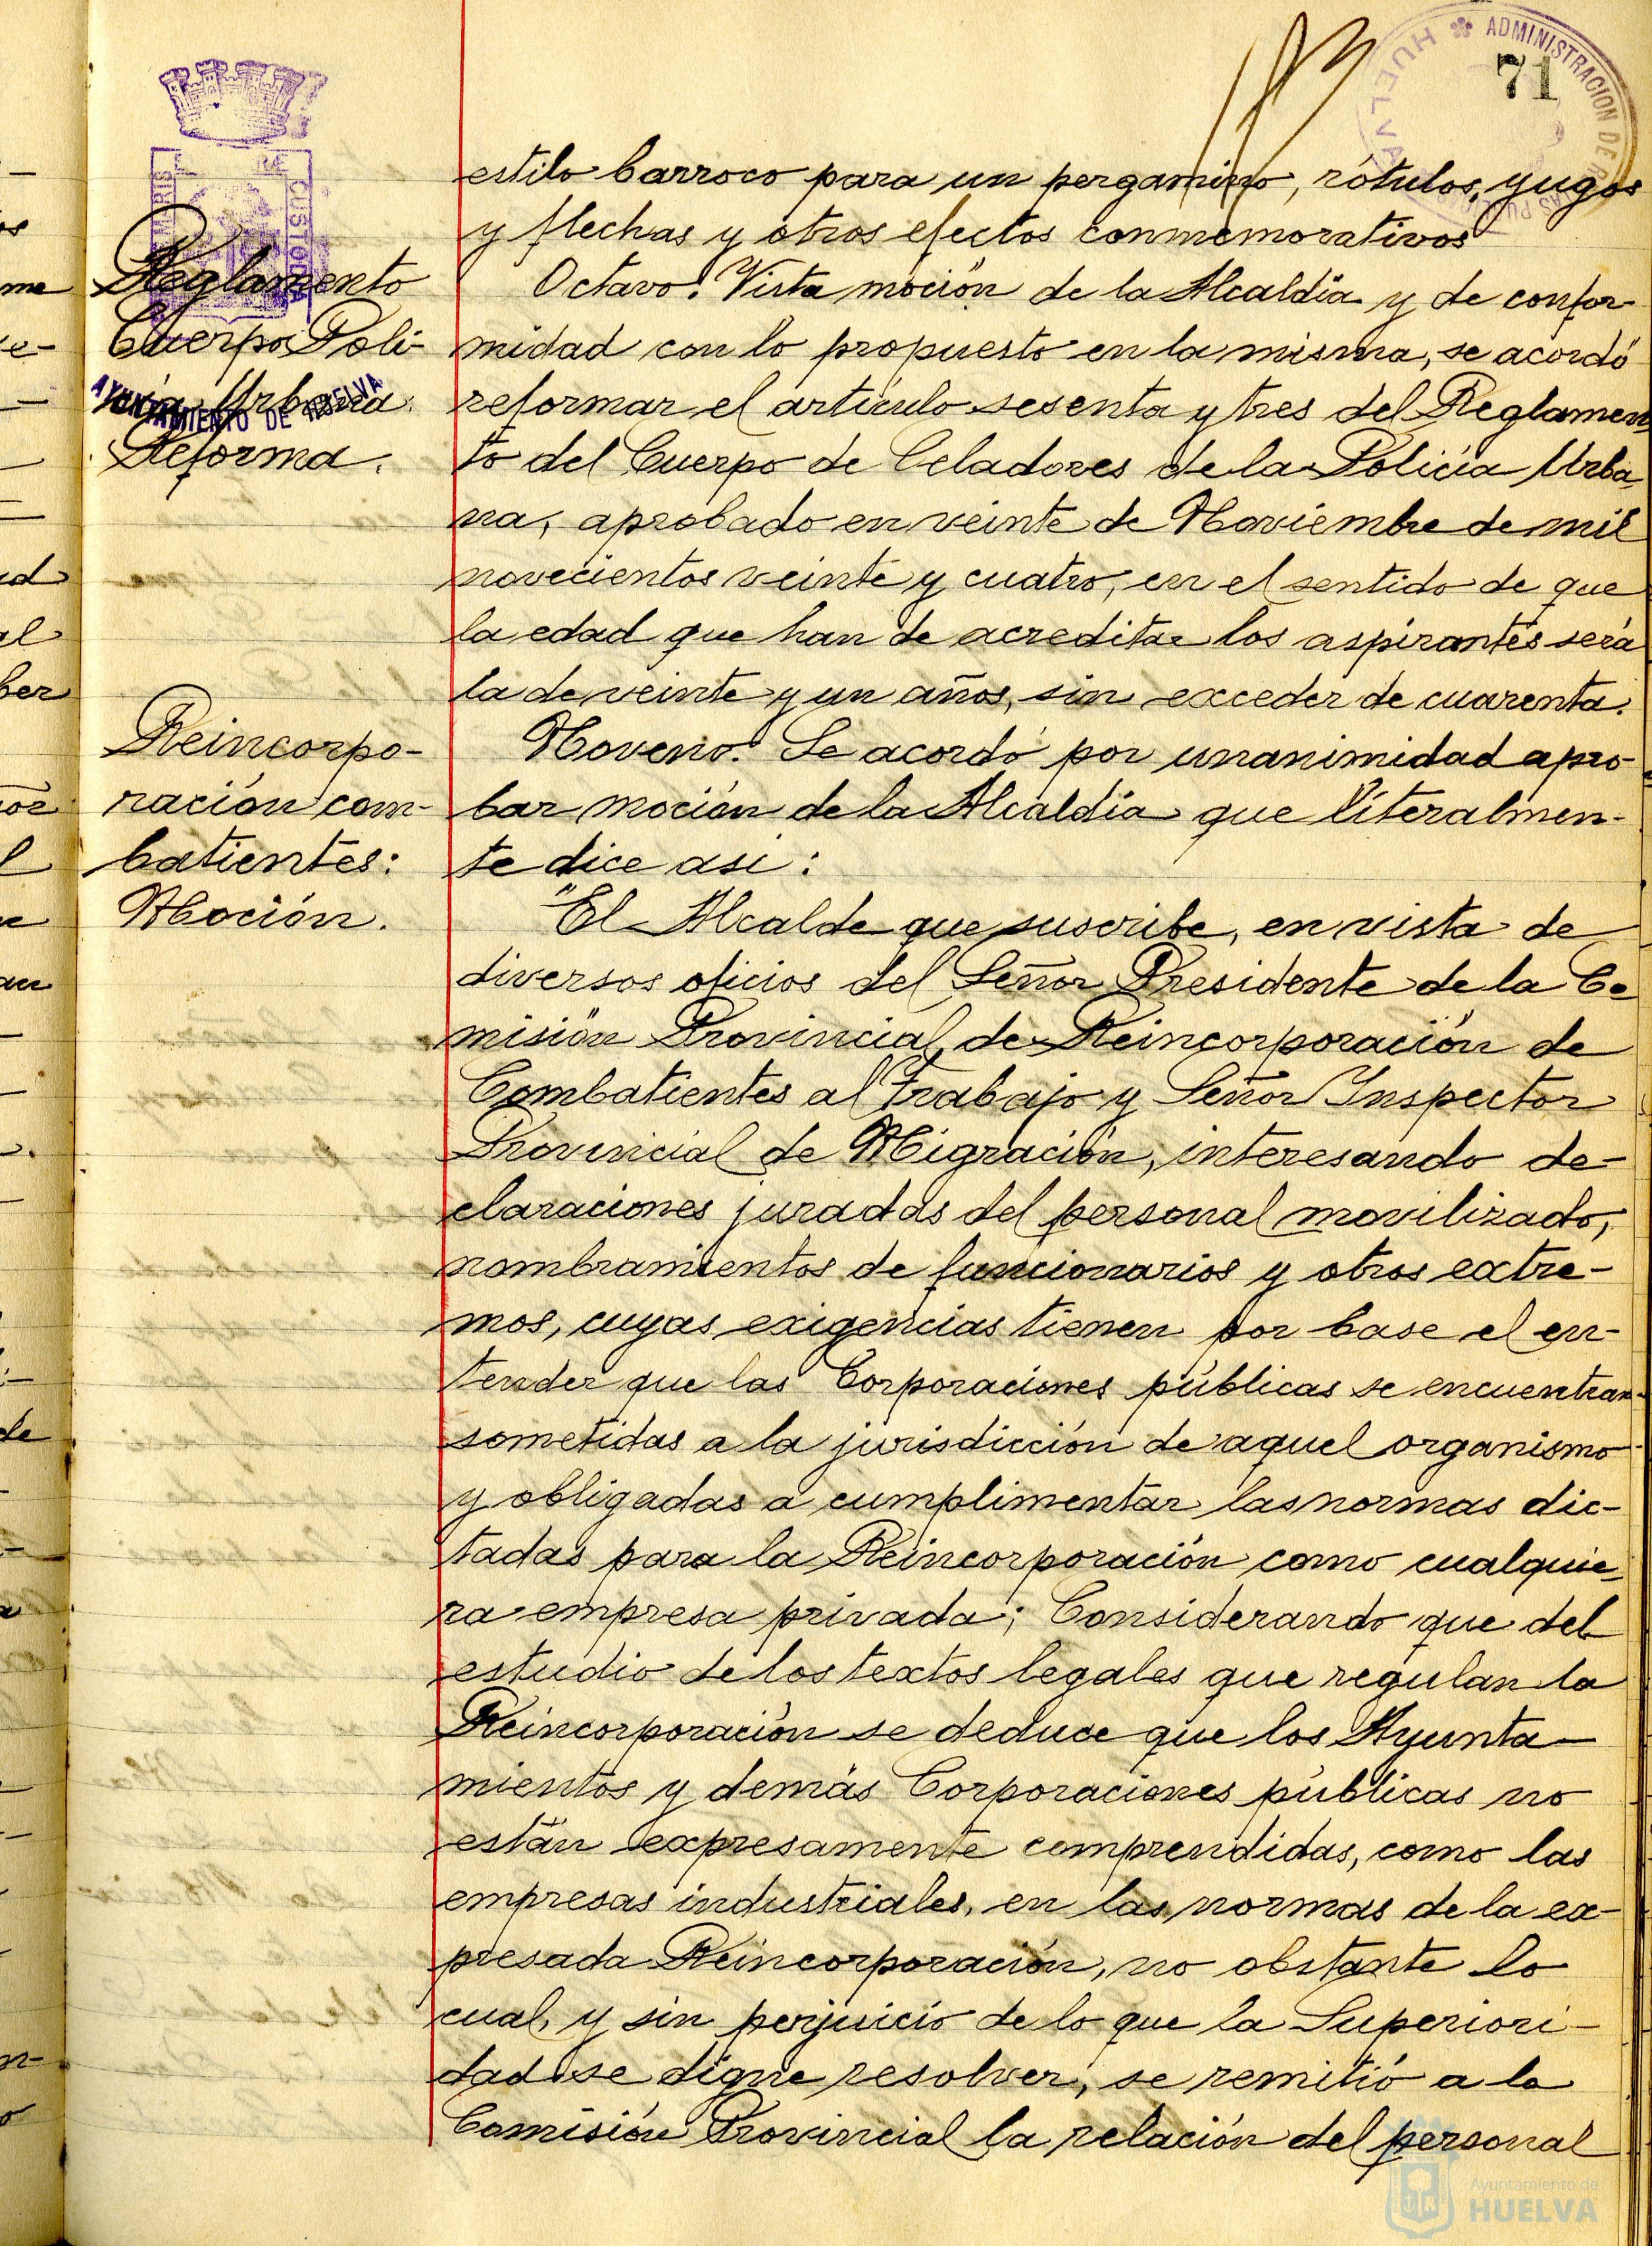 71
ADMINISTRACION DE
HUELVA
estilo barroco para un pergamino, rótulos, yugos
y flechas y otros efectos conmemorativos
Reglamento
Cuerpo Poli-
cía Urbana.
Reforma.
AYUNTAMIENTO DE HUELVA
CUSTODIA
Octavo. Vista moción de la Alcaldía y de confor-
midad con lo propuesto en la misma, se acordó
reformar el artículo sesenta y tres del Reglamen
to del Cuerpo de Celadores de la Policía Urba
na, aprobado en veinte de Noviembre de mil
novecientos veinte y cuatro, en el sentido de que
la edad que han de acreditar los aspirantes será
la de veinte y un años, sin exceder de cuarenta.
Reincorpo-
ración com-
batientes:
Moción.
Noveno. Se acordó por unanimidad apro-
bar moción de la Alcaldía que literalmen-
te dice asi:
"El Alcalde que suscribe, en vista de
diversos oficios del Señor Presidente de la Co
misión Provincial de Reincorporación de
Combatientes al Trabajo y Señor Inspector
Provincial de Migración, interesando de-
claraciones juradas del personal movilizado,
nombramientos de funcionarios y otros extre-
mos, cuyas exigencias tienen por base el en-
tender que las Corporaciones públicas se encuentran
sometidas a la jurisdicción de aquel organismo
y obligadas a cumplimentar las normas dic-
tadas para la Reincorporación como cualquie
ra empresa privada; Considerando que del
estudio de los textos legales que regulan la
Reincorporación se deduce que los Ayunta-
mientos y demás Corporaciones públicas no
están expresamente comprendidas, como las
empresas industriales, en las normas de la ex-
presada Reincorporación, no obstante lo
cual, y sin perjuicio de lo que la Superiori-
dad se digne resolver, se remitió a la
Comisión Provincial la relación del personal
Ayuntamiento de
HUELVA